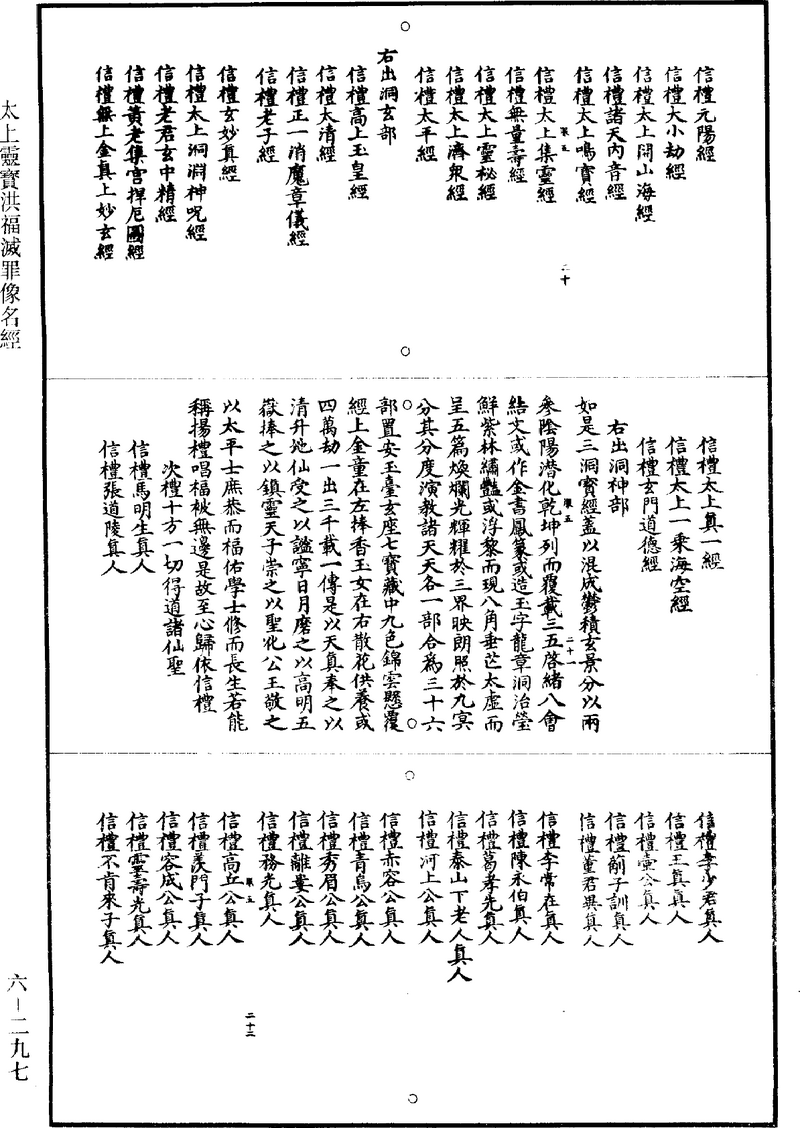 信禮元陽經
信禮大小劫經
信禮太上開山海經
信禮諸天內音經
信禮太上鳴寶經
信禮太上集靈經
信禮無量壽經
信禮太上靈祕經
信禮太上濟衆經
信禮太平經
右出洞玄部
信禮高上玉皇經
信禮太清經
信禮正一消魔章儀經
信禮老子經
信禮玄妙真經
信禮太上洞淵神呪經
信禮老君玄中精經
信禮黃老集宮捍厄圖經
信禮無上金真上妙玄經
二十
信禮太上真一經
信禮太上一乘海空經
信禮玄門道德經
右出洞神部
如是三洞寶經蓋以混成鬱積玄景分以兩
參陰陽潛化乾坤列而覆載三五啓緒八會
結文或作金書鳳篆或造玉字龍章洞治瑩
鮮紫林繡豔或浮黎而現八角垂芒太虛而
呈五篇煥爛光輝耀於三界映朗照於九冥
分其分度演教諸天天各一部合爲三十六
部置安玉臺玄座七寶藏中九色錦雲懸覆
經上金童在左捧香玉女在右散花供養或
四萬劫一出三千載一傳是以天真奉之以
清升地仙受之以謐寧日月磨之以高明五
嶽捧之以鎮靈天子崇之以聖化公王敬之
以太平士庶恭而福佑學士修而長生若能
稱揚禮唱福被無邊是故至心歸依信禮
次禮十方一切得道諸仙聖
信禮馬明生真人
信禮張道陵真人
二十一
信禮李少君真人
信禮王真真人
信禮壺公真人
信禮薊子訓真人
信禮董君異真人
信禮李常在真人
信禮陳永伯真人
信禮葛孝先真人
信禮泰山下老人真人
信禮河上公真人
信禮赤容公真人
信禮青烏公真人
信禮秀眉公真人
信禮離婁公真人
信禮務光真人
信禮高丘公真人
信禮羨門子真人
信禮容成公真人
信禮靈壽光真人
信禮不肯來子真人
二十二
太上靈寶洪福滅罪像名經
六－二九七